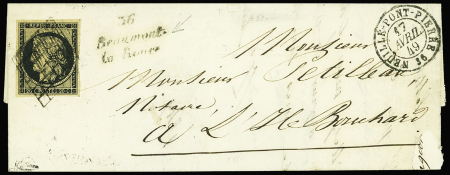 REPUB. FRANC.
36
Beaumont-
la-Ronce
NEUILLÉ-PONT-PIERRE 36
17
AVRIL
49
Monsieur
Monsieur Petilleau
Notaire,
a L'Ile Bouchard